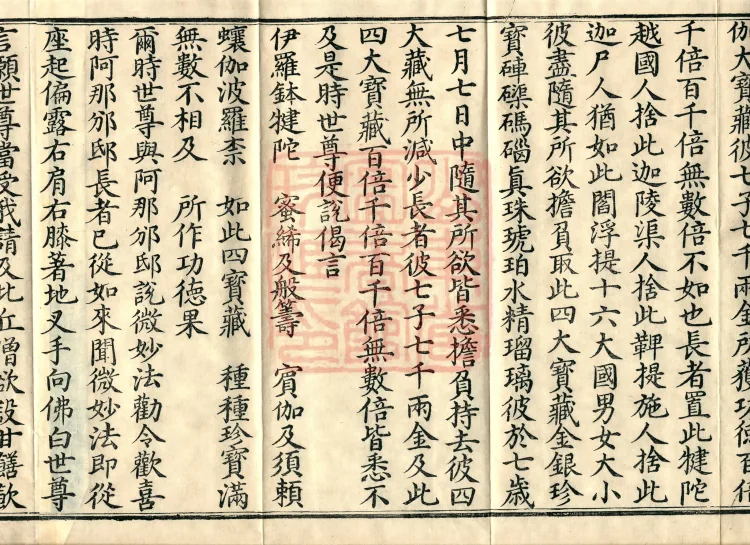 伽大寶藏彼七子七千兩金所獲功德百倍
千倍百千倍無數倍不如也長者置此犍陀
越國人捨此迦陵渠人捨此鞞提施人捨此
迦尸人猶如此閻浮提十六大國男女大小
彼盡隨其所欲擔負取此四大寶藏金銀珍
寶硨磲碼碯眞珠琥珀水精瑠璃彼於七歲
七月七日中隨其所欲皆悉擔負持去彼四
大藏無所減少長者彼七子七千兩金及此
四大寶藏百倍千倍百千倍無數倍皆悉不
及是時世尊便說偈言
伊羅鉢犍陀　蜜絺及般籌　賓伽及須賴
蠰伽波羅柰　如此四寶藏　種種珍寶滿
無數不相及　所作功德果
爾時世尊與阿那邠邸說微妙法勸令歡喜
時阿那邠邸長者已從如來聞微妙法即從
座起偏露右肩右膝著地叉手向佛白世尊
言願世尊當受我請及比丘僧欲設甘饍飲